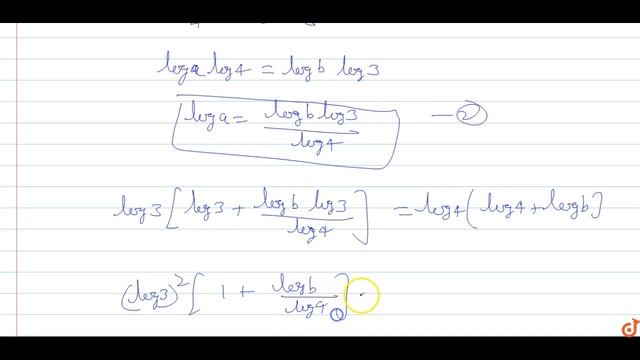 log a log 4 = log b log 3
log a = (log b log 3)/(log 4) — ②
log 3 [ log 3 + (log b log 3)/(log 4) ] = log 4 ( log 4 + log b ]
(log 3)² [ 1 + (log b)/(log 4) ]